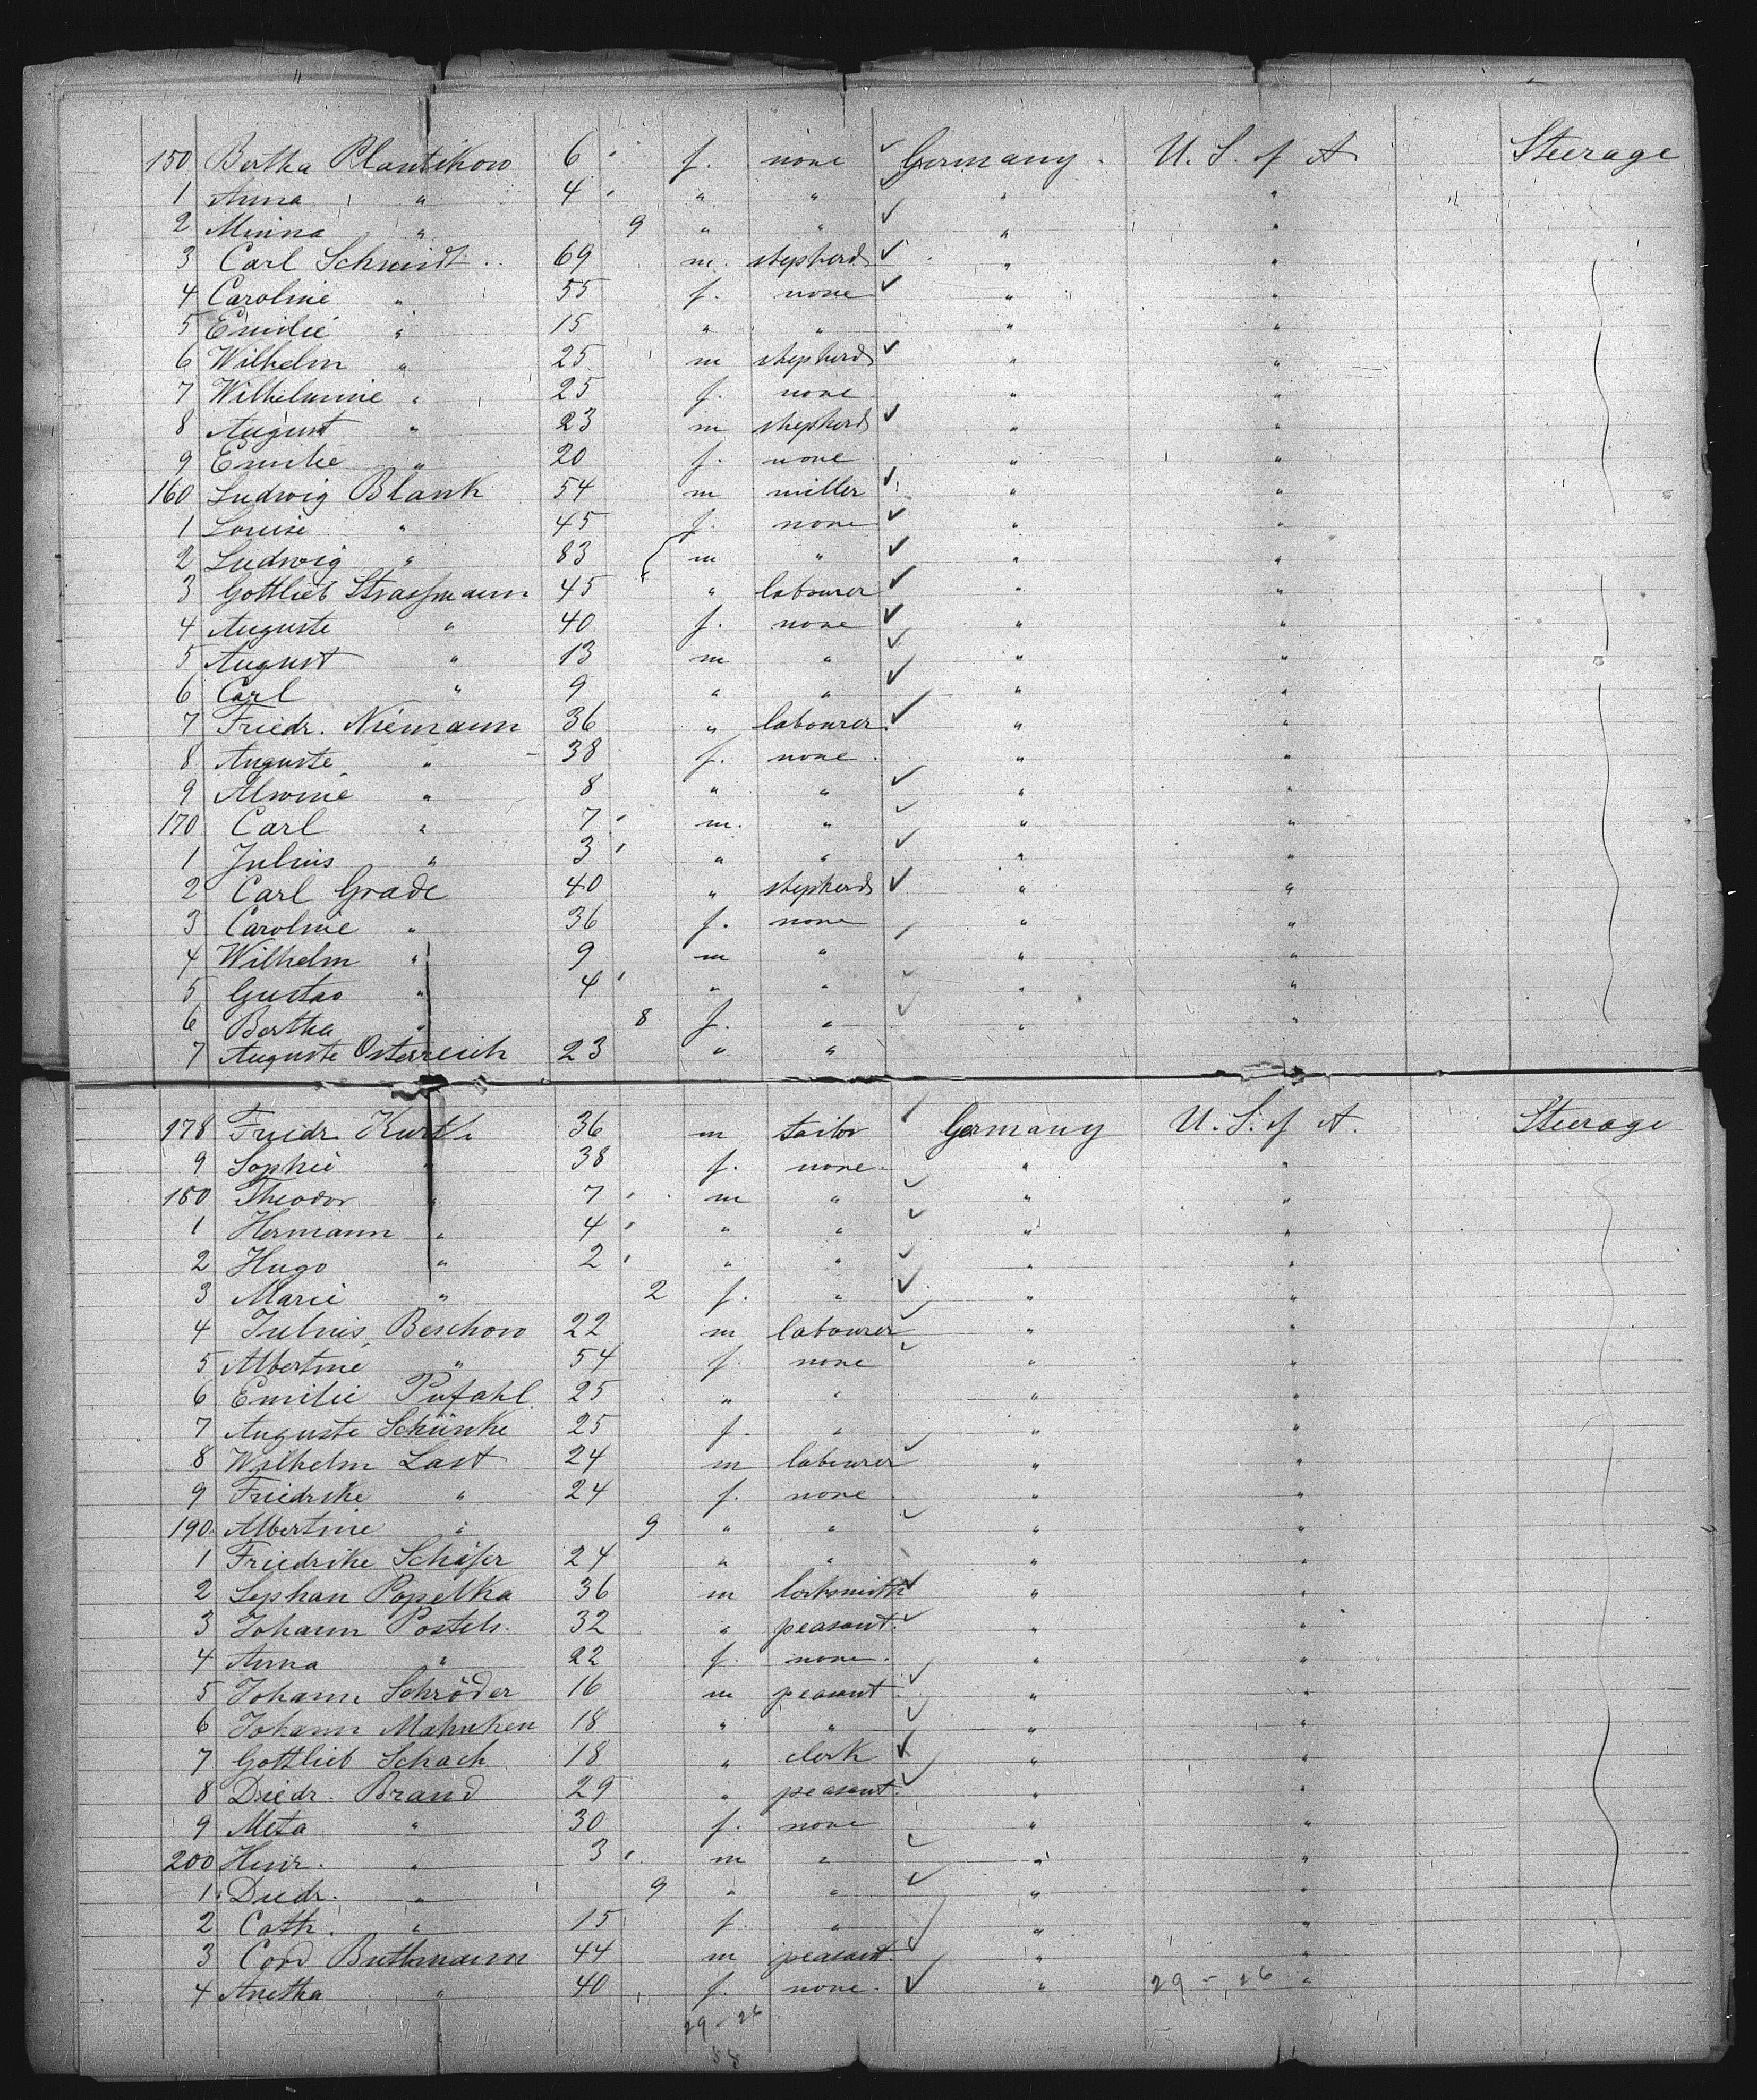 150 Bertha Plantikow 6 f. none Germany. U. S. of A Steerage
1 Anna " 4 " " " "
2 Minna " 9 " " " "
3 Carl Schmidt 69 m. shepherd " "
4 Caroline " 55 f. none " "
5 Emilie " 15 " " " "
6 Wilhelm " 25 m shepherd " "
7 Wilhelmine " 25 f. none " "
8 August " 23 m shepherd " "
9 Emilie " 20 f. none " "
160 Ludwig Blank 54 m miller " "
1 Louise " 45 f. none " "
2 Ludwig " 83 m " " "
3 Gottlieb Strassmann 45 " labourer " "
4 Auguste " 40 f. none " "
5 August " 13 m " " "
6 Carl " 9 " " " "
7 Friedr. Niemann 36 " labourer " "
8 Auguste " 38 f. none " "
9 Alwine " 8 " " " "
170 Carl " 7 m. " " "
1 Julius " 3 " " " "
2 Carl Grade 40 " shepherd " "
3 Caroline " 36 f. none " "
4 Wilhelm " 9 m " " "
5 Gustav " 4 " " " "
6 Bertha " 8 f. " " "
7 Auguste Osterreich 23 " "
178 Friedr. Kurth 36 m tailor Germany U. S. of A. Steerage
9 Sophie " 38 f. none " "
180 Theodor " 7 m " " "
1 Hermann " 4 " " " "
2 Hugo " 2 " " " "
3 Marie " 2 f. " " "
4 Julius Beschow 22 m labourer " "
5 Albertine " 54 f. none " "
6 Emilie Pufahl 25 " " " "
7 Auguste Schünke 25 f. " " "
8 Wilhelm Last 24 m labourer " "
9 Friedrike " 24 f. none " "
190 Albertine " 9 " " " "
1 Friedrike Schäfer 24 " " " "
2 Sephan Popelka 36 m locksmith " "
3 Johann Postels 32 " peasant. " "
4 Anna " 22 f. none. " "
5 Johann Schröder 16 m peasant " "
6 Johann Mahnken 18 " " " "
7 Gottlieb Schach 18 " clerk " "
8 Diedr. Brand 29 " peasant. " "
9 Meta " 30 f. none " "
200 Heinr. " 3 m " " "
1 Diedr. " 9 " " " "
2 Cath. " 15 f " " "
3 Cord Buthmann 44 m peasant. " "
4 Anetha " 40 f. none. " 29 - 26 "
29 - 26